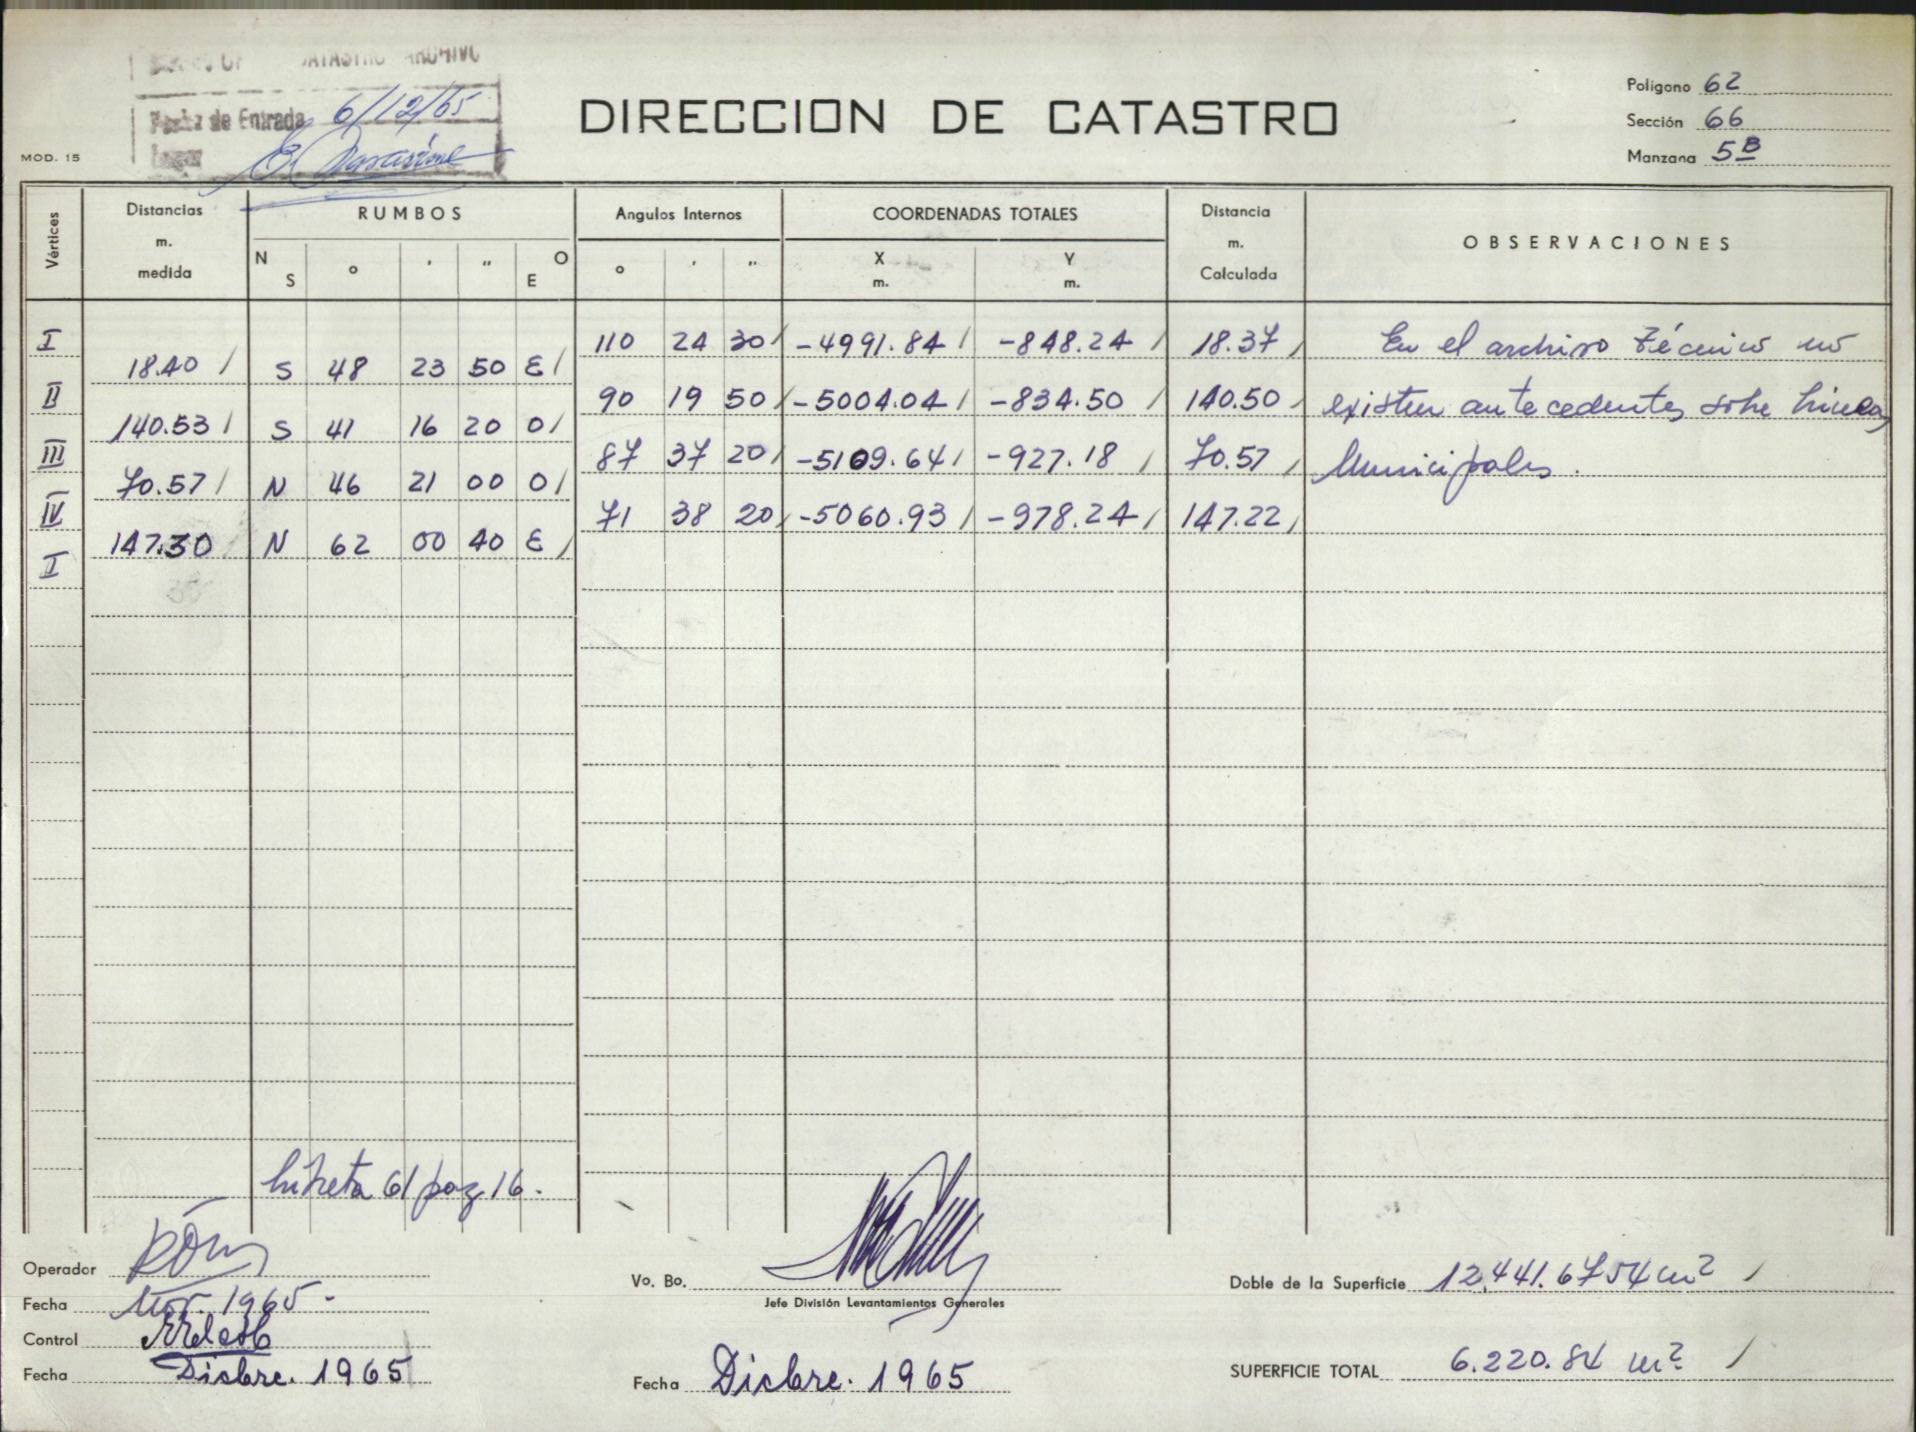 CATASTRO ARCHIVO
Fecha de Entrada 6/12/65
DIRECCION DE CATASTRO
MOD. 15
Polígono 62
Sección 66
Manzana 5B
Vértices
Distancias m. medida
RUMBOS
N S ° ' " O E
Angulos Internos
° ' "
COORDENADAS TOTALES
X m. Y m.
Distancia m. Calculada
OBSERVACIONES
I 110 24 30 -4991.84 -848.24 18.37 En el archivo técnico no
18.40 S 48 23 50 E
II 90 19 50 -5004.04 -834.50 140.50 existen antecedentes sobre lineas
140.53 S 41 16 20 O
III 87 37 20 -5109.64 -927.18 70.57 Municipales.
70.57 N 46 21 00 O
IV 71 38 20 -5060.93 -978.24 147.22
147.30 N 62 00 40 E
I
Libreta 61 pag 16.
Operador
Fecha Nov. 1965.
Control
Fecha Dicbre. 1965
Vo. Bo.
Jefe División Levantamientos Generales
Fecha Dicbre. 1965
Doble de la Superficie 12,441.6754 m2
SUPERFICIE TOTAL 6.220.84 m2